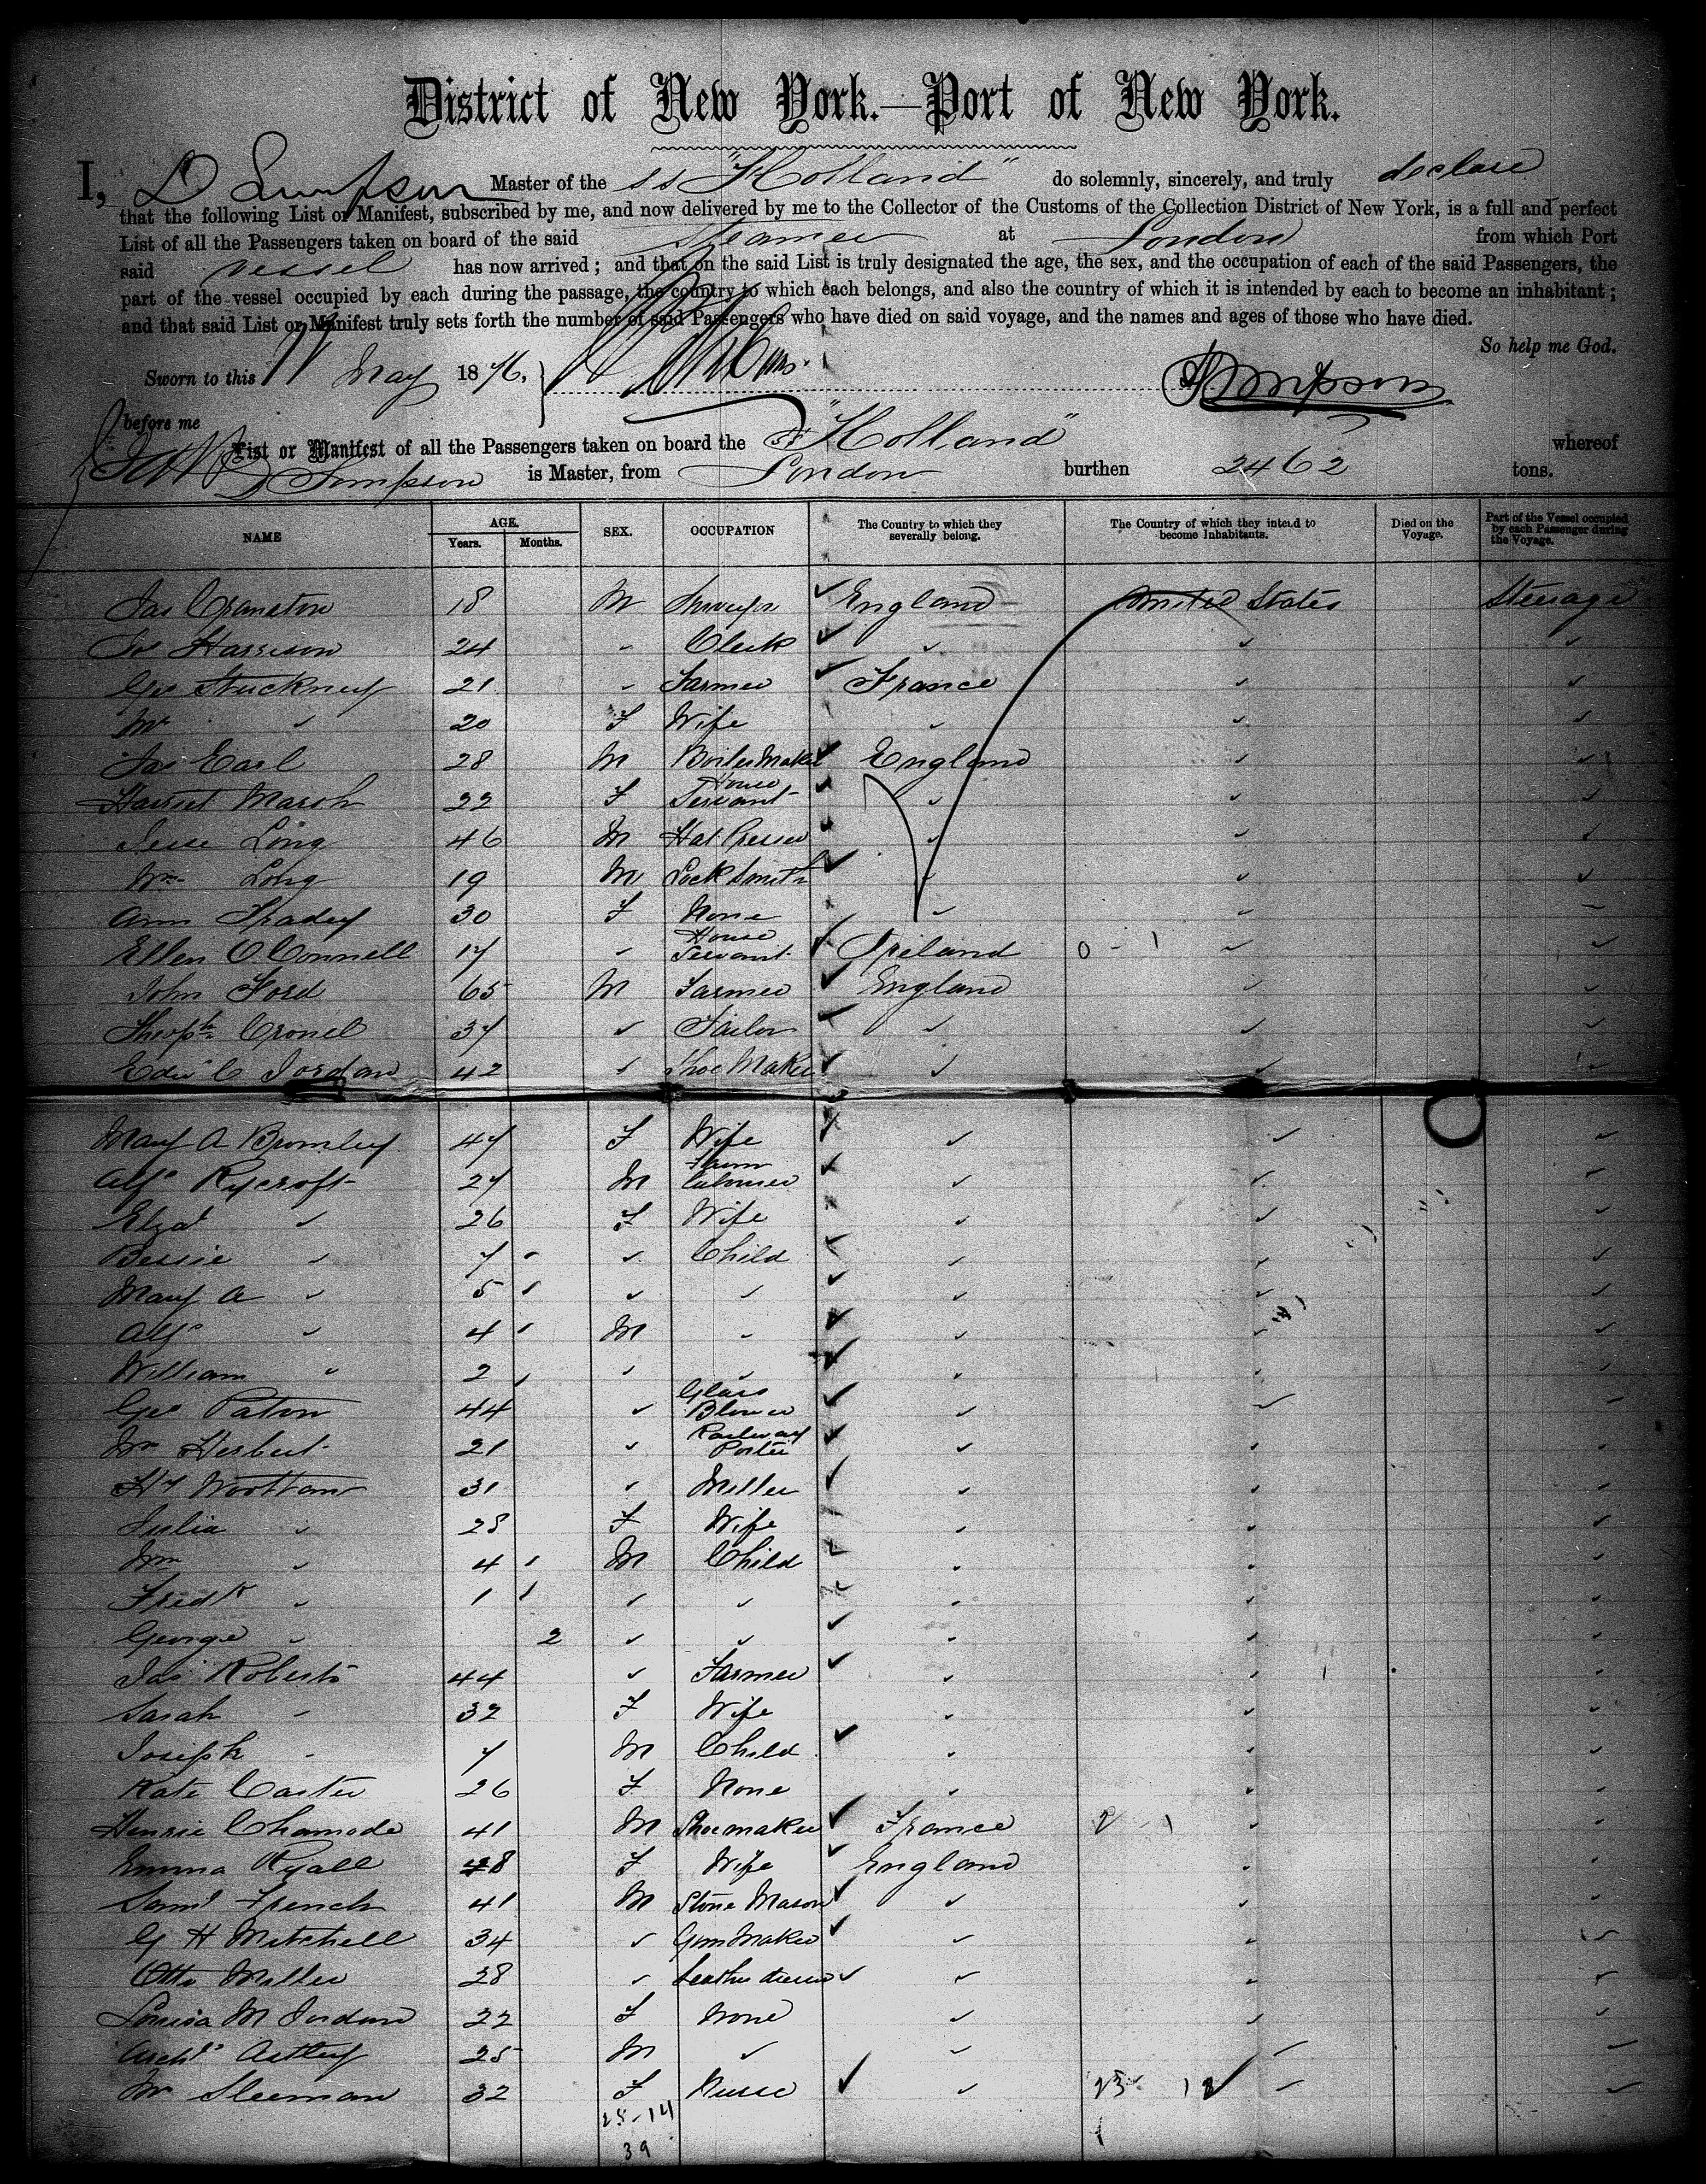 District of New York.—Port of New York.
I, D Simpson Master of the ss "Holland" do solemnly, sincerely, and truly declare
that the following List or Manifest, subscribed by me, and now delivered by me to the Collector of the Customs of the Collection District of New York, is a full and perfect
List of all the Passengers taken on board of the said Steamer at London from which Port
said vessel has now arrived; and that on the said List is truly designated the age, the sex, and the occupation of each of the said Passengers, the
part of the vessel occupied by each during the passage, the country to which each belongs, and also the country of which it is intended by each to become an inhabitant;
and that said List or Manifest truly sets forth the number of said Passengers who have died on said voyage, and the names and ages of those who have died.
So help me God.
Sworn to this 11 May 1876. Simpson
before me
List or Manifest of all the Passengers taken on board the SS "Holland" whereof
D Simpson is Master, from London burthen 2462 tons.
NAME AGE. Years. Months. SEX. OCCUPATION The Country to which they severally belong. The Country of which they intend to become Inhabitants. Died on the Voyage. Part of the Vessel occupied by each Passenger during the Voyage.
Jas Cranston 18 M England United States Steerage
Harrison 24 " Clerk " " "
Geo Stuckney 21 " Farmer France " "
Mrs " 20 F Wife " " "
Jas Earl 28 M Boiler Maker England " "
Harriet Marsh 22 F House Servant " " "
Jesse Long 46 M Hat Presser " " "
Wm Long 19 M Lock Smith " " "
Ann 30 F None " " "
Ellen O'Connell 17 " House Servant Ireland 0 - 1 " "
John Ford 65 M Farmer England " "
Theoph Cronel 37 " Tailor " " "
Edw C Jordan 42 " Shoe Maker " " "
Mary A Bromley 47 F Wife " " "
Alfd Rycroft 27 M Farm Labourer " " "
Elzath " 26 F Wife " " "
Bessie " 7 " Child " " "
Mary A " 5 " " " " "
Alfd " 4 M " " " "
William " 2 " " " " "
Geo Paton 44 " Glass Blower " " "
Wm Herbert 21 " Railway Porter " " "
Hy Wootton 31 " Miller " " "
Julia " 28 F Wife " " "
Wm " 4 M Child " " "
Fredk " 1 " " " " "
George " 2 " " " " "
Jas Roberts 44 " Farmer " " "
Sarah " 32 F Wife " " "
Joseph " 7 M Child " " "
Kate Carter 26 F None " " "
Henrie Chamode 41 M Shoemaker France 2 1 " "
Emma Ryall 28 F Wife England " "
Saml French 41 M Stone Mason " " "
G H Mitchell 34 " Gun Maker " " "
Otto Miller 28 " Leather " " "
Louisa M Jordan 22 F None " " "
Archd Astley 25 M " " " "
Mrs Sleeman 32 F Nurse " 23 12 " "
25-14 1
39